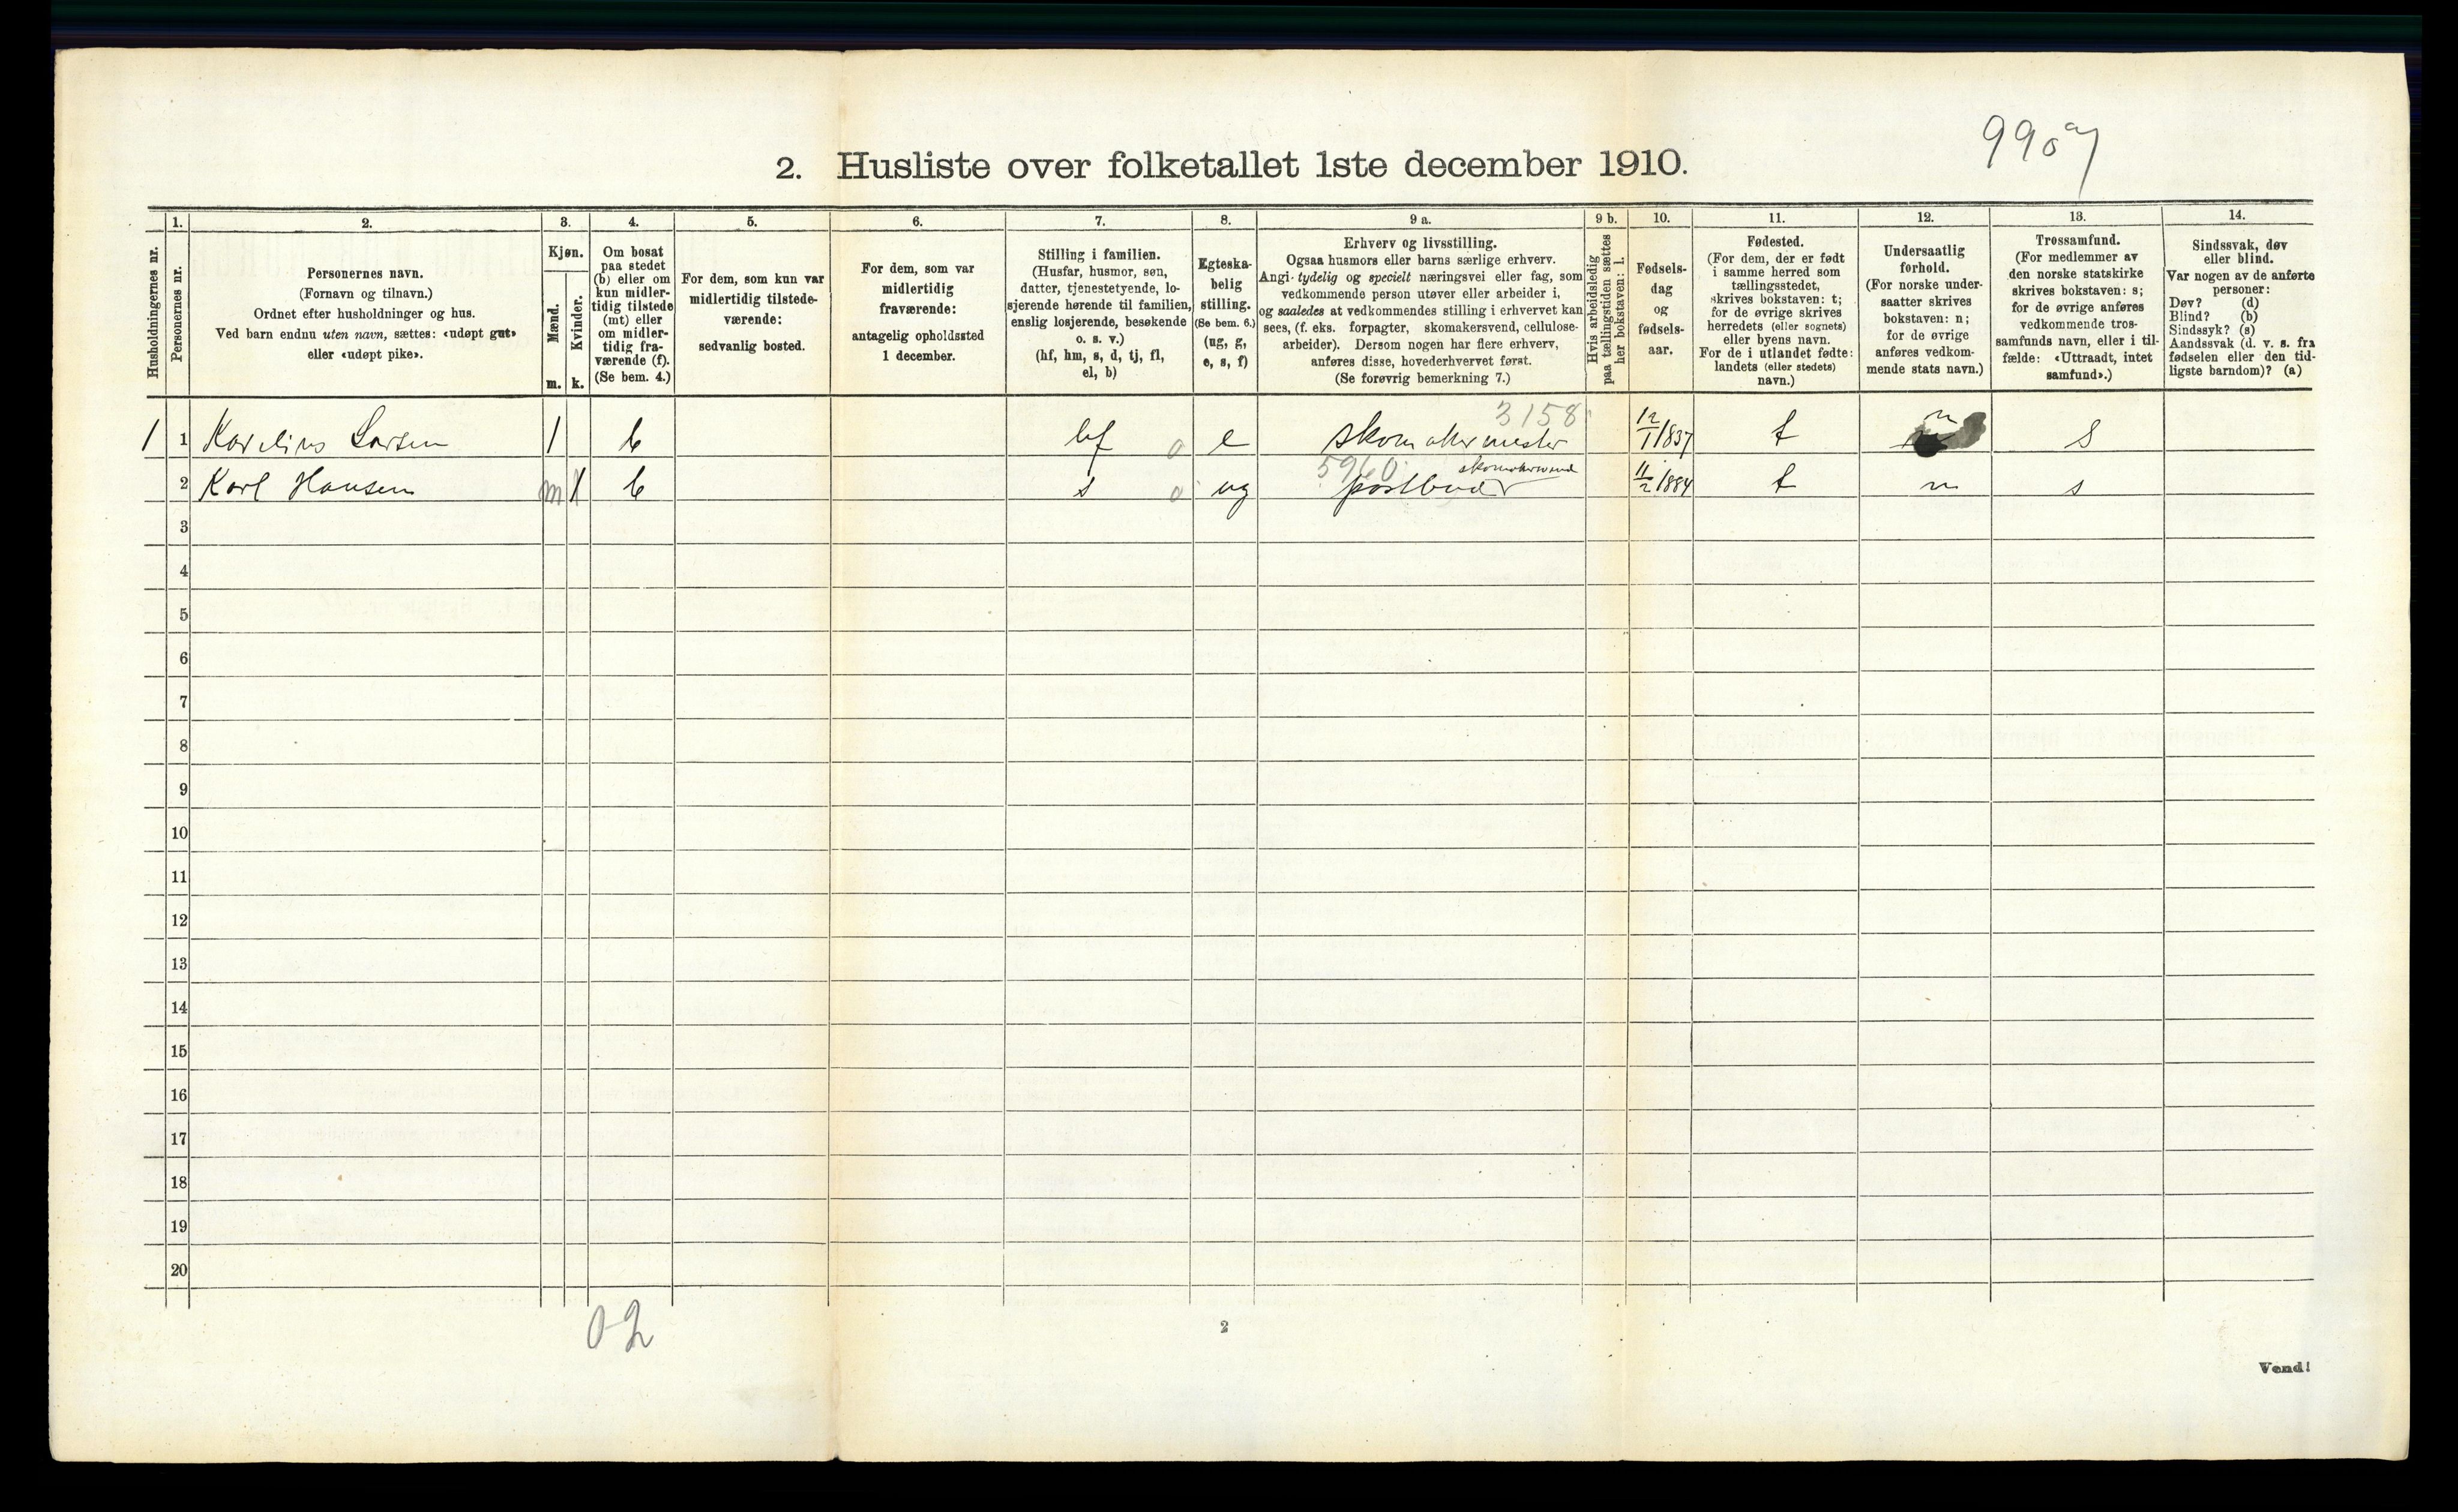 9907
2. Husliste over folketallet 1ste december 1910.
1. 2. 3. 4. 5. 6. 7. 8. 9 a. 9 b. 10. 11. 12. 13. 14.
Husholdningernes nr.
Personernes nr.
Personernes navn.
(Fornavn og tilnavn.)
Ordnet efter husholdninger og hus.
Ved barn endnu uten navn, sættes: «udøpt gut»
eller «udøpt pike».
Kjøn.
Mænd.
Kvinder.
m. k.
Om bosat
paa stedet
(b) eller om
kun midler-
tidig tilstede
(mt) eller
om midler-
tidig fra-
værende (f).
(Se bem. 4.)
For dem, som kun var
midlertidig tilstede-
værende:
sedvanlig bosted.
For dem, som var
midlertidig
fraværende:
antagelig opholdssted
1 december.
Stilling i familien.
(Husfar, husmor, søn,
datter, tjenestetyende, lo-
sjerende hørende til familien,
enslig losjerende, besøkende
o. s. v.)
(hf, hm, s, d, tj, fl,
el, b)
Egteska-
belig
stilling.
(Se bem. 6.)
(ug, g,
e, s, f)
Erhverv og livsstilling.
Ogsaa husmors eller barns særlige erhverv.
Angi tydelig og specielt næringsvei eller fag, som
vedkommende person utøver eller arbeider i,
og saaledes at vedkommendes stilling i erhvervet kan
sees, (f. eks. forpagter, skomakersvend, cellulose-
arbeider). Dersom nogen har flere erhverv,
anføres disse, hovederhvervet først.
(Se forøvrig bemerkning 7.)
Hvis arbeidsledig
paa tællingstiden sættes
her bokstaven: l.
Fødsels-
dag
og
fødsels-
aar.
Fødested.
(For dem, der er født
i samme herred som
tællingsstedet,
skrives bokstaven: t;
for de øvrige skrives
herredets (eller sognets)
eller byens navn.
For de i utlandet fødte:
landets (eller stedets)
navn.)
Undersaatlig
forhold.
(For norske under-
saatter skrives
bokstaven: n;
for de øvrige
anføres vedkom-
mende stats navn.)
Trossamfund.
(For medlemmer av
den norske statskirke
skrives bokstaven: s;
for de øvrige anføres
vedkommende tros-
samfunds navn, eller i til-
fælde: «Uttraadt, intet
samfund».)
Sindssvak, døv
eller blind.
Var nogen av de anførte
personer:
Døv? (d)
Blind? (b)
Sindssyk? (s)
Aandssvak (d. v. s. fra
fødselen eller den tid-
ligste barndom)? (a)
3158
1 1 Karelius Larsen 1 b hf 0 e skomakermester 12/1 1837 t n s
5960 skomakersvend
2 Karl Hansen m 1 b s 0 ug postbud 11/2 1884 t n s
3
4
5
6
7
8
9
10
11
12
13
14
15
16
17
18
19
20
0-2
2
Vend!